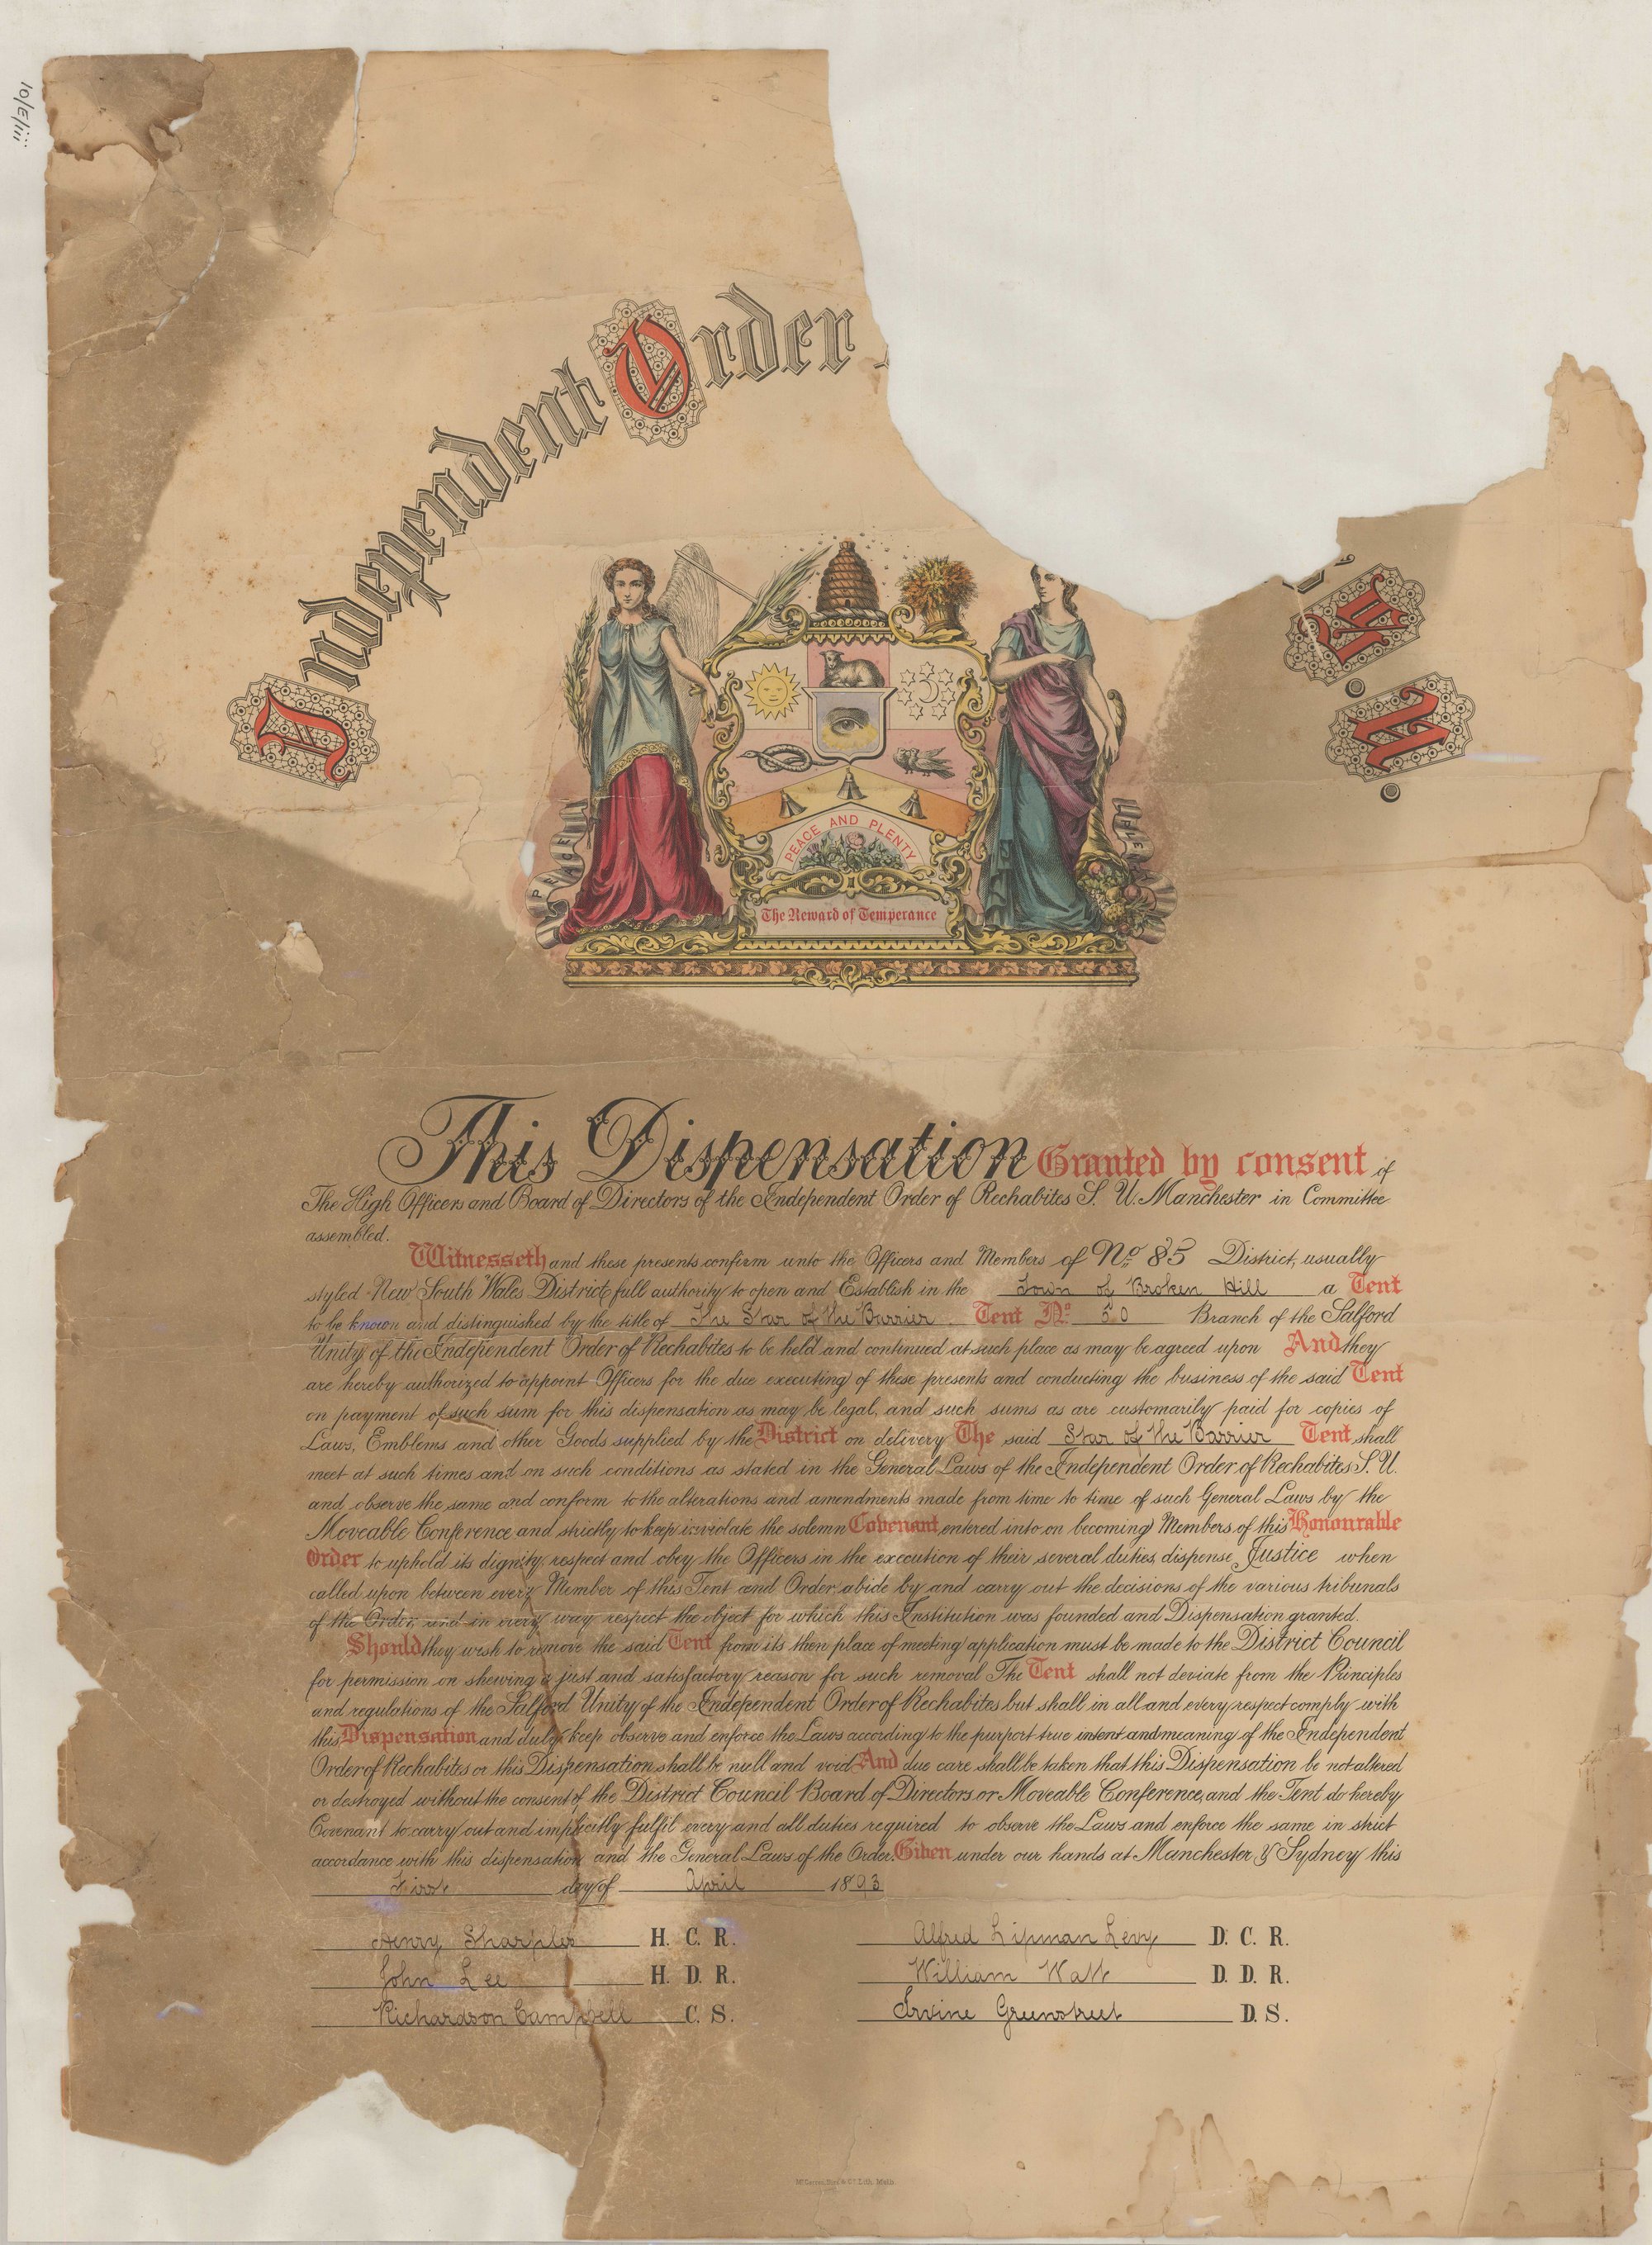 10/E/iii
Independent Order
S. U.
PEACE
LOVE
PEACE AND PLENTY
The Reward of Temperance
This Dispensation Granted by consent of
The High Officers and Board of Directors of the Independent Order of Rechabites S. U. Manchester in Committee
assembled.
Witnesseth and these presents confirm unto the Officers and Members of No 85 District, usually
styled New South Wales District full authority to open and Establish in the Town of Broken Hill a Tent
to be known and distinguished by the title of The Star of the Barrier Tent No. 50 Branch of the Salford
Unity of the Independent Order of Rechabites to be held and continued at such place as may be agreed upon And they
are hereby authorized to appoint Officers for the due executing of these presents and conducting the business of the said Tent
on payment of such sum for this dispensation as may be legal, and such sums as are customarily paid for copies of
Laws, Emblems and other Goods supplied by the District on delivery The said Star of the Barrier Tent shall
meet at such times and on such conditions as stated in the General Laws of the Independent Order of Rechabites S. U.
and observe the same and conform to the alterations and amendments made from time to time of such General Laws by the
Moveable Conference and strictly to keep inviolate the solemn Covenant entered into on becoming Members of this Honourable
Order to uphold its dignity, respect and obey the Officers in the execution of their several duties, dispense Justice when
called upon between every Member of this Tent and Order, abide by and carry out the decisions of the various tribunals
of the Order, and in every way respect the object for which this Institution was founded and Dispensation granted.
Should they wish to remove the said Tent from its then place of meeting application must be made to the District Council
for permission on shewing a just and satisfactory reason for such removal The Tent shall not deviate from the Principles
and regulations of the Salford Unity of the Independent Order of Rechabites but shall in all and every respect comply with
this Dispensation and duly keep observe and enforce the Laws according to the purport true intent and meaning of the Independent
Order of Rechabites or this Dispensation shall be null and void And due care shall be taken that this Dispensation be not altered
or destroyed without the consent of the District Council Board of Directors or Moveable Conference, and the Tent do hereby
Covenant to carry out and implicitly fulfil every and all duties required to observe the Laws and enforce the same in strict
accordance with this dispensation and the General Laws of the Order. Given under our hands at Manchester & Sydney this
First day of April 1893
Henry Sharples H. C. R. Alfred Lipman Levy D. C. R.
John Lee H. D. R. William Watt D. D. R.
Richardson Campbell C. S. Irvine Greenstreet D. S.
Lith. Melb.